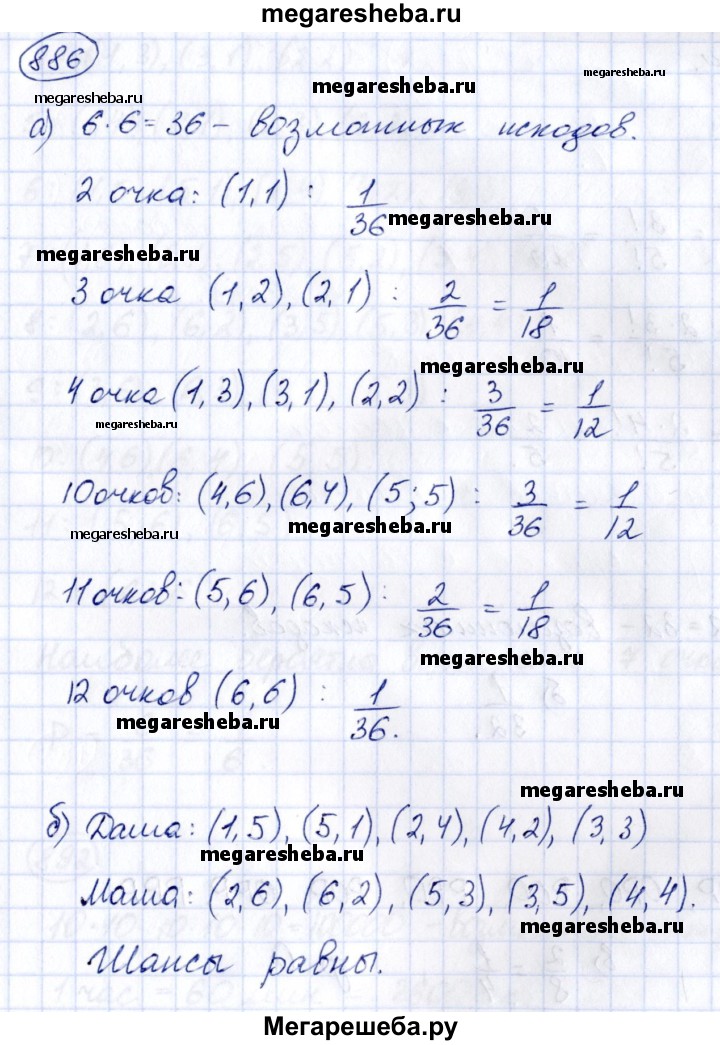 megaresheba.ru
886
megaresheba.ru
megaresheba.ru
а) 6·6=36 - возможных исходов.
2 очка: (1,1) : 1/36
megaresheba.ru
megaresheba.ru
3 очка (1,2), (2,1) : 2/36 = 1/18
megaresheba.ru
4 очка (1,3), (3,1), (2,2) : 3/36 = 1/12
megaresheba.ru
10 очков: (4,6), (6,4), (5;5) : 3/36 = 1/12
megaresheba.ru
megaresheba.ru
11 очков: (5,6), (6,5) : 2/36 = 1/18
megaresheba.ru
12 очков (6,6) : 1/36.
megaresheba.ru
megaresheba.ru
б) Даша: (1,5), (5,1), (2,4), (4,2), (3,3)
megaresheba.ru
Маша: (2,6), (6,2), (5,3), (3,5), (4,4).
megaresheba.ru
Шансы равны.
Мегарешеба.ру